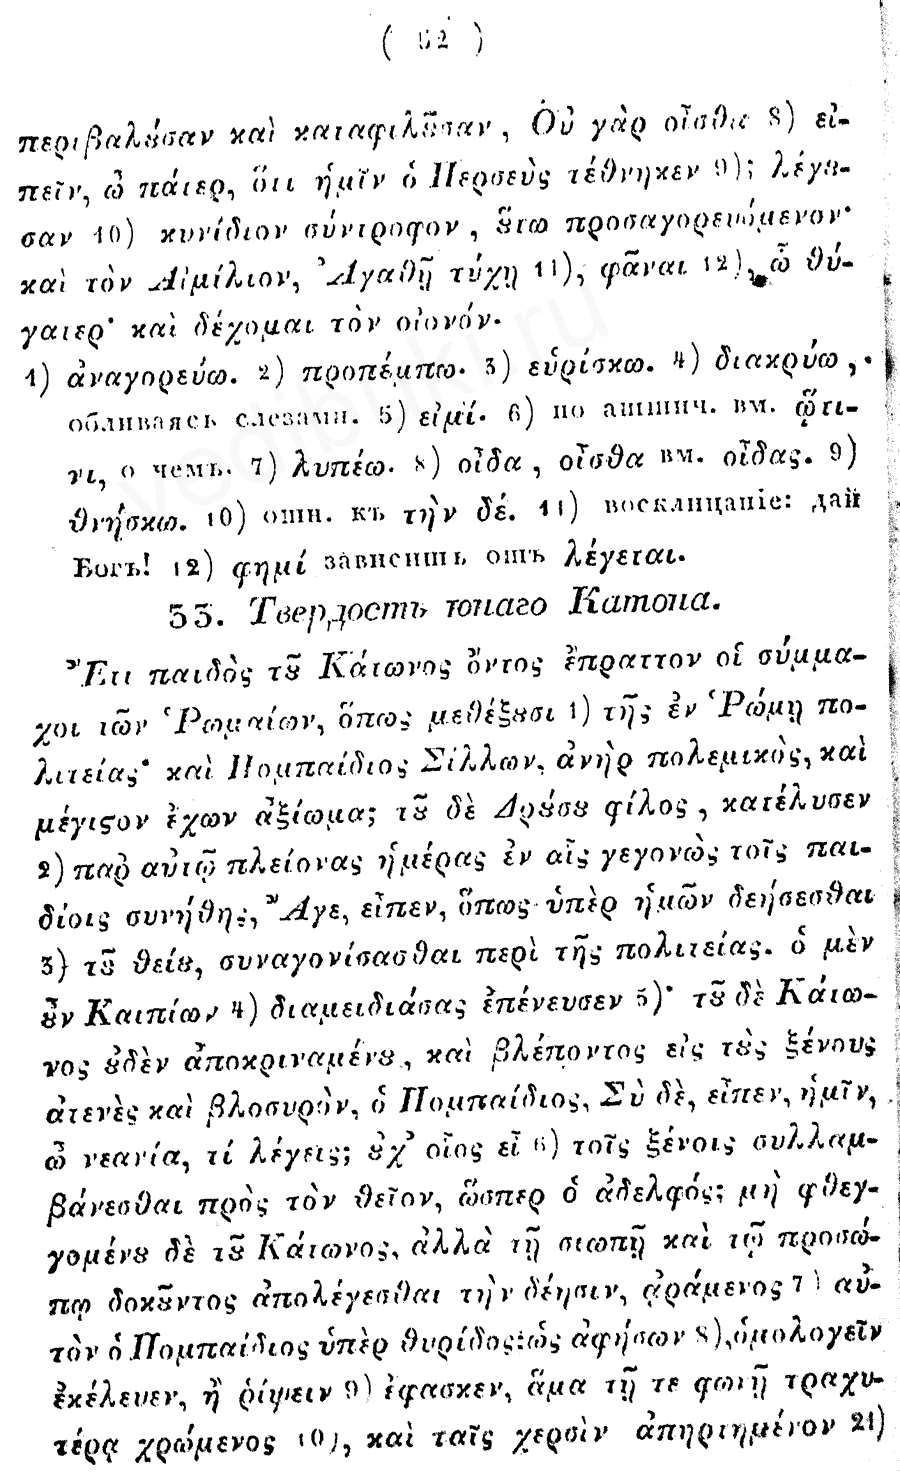 ( 52 )
περιβαλȣ́σαν καὶ καταφιλȣ͂σαν, Οὐ γὰρ οἶσθα 8) εἰ-
πεῖν, ὦ πάτερ, ὅτι ἡμῖν ὁ Περσεὺς τέθνηκεν 9); λέγȣ-
σαν 10) κυνίδιον σύντροφον, ȣ̔́τω προσαγορευόμενον·
καὶ τὸν Αἰμίλιον, Ἀγαθῇ τύχῃ 11), φᾶναι 12), ὦ θύ-
γατερ· καὶ δέχομαι τὸν οἰονόν.
1) ἀναγορεύω. 2) προπέμπω. 3) εὑρίσκω. 4) διακρύω,
обливаясь слезами. 5) εἰμί. 6) по аттич. вм. ᾧτι-
νι, о чемъ. 7) λυπέω. 8) οἶδα, οἶσθα вм. οἶδας. 9)
θνήσκω. 10) отн. къ τὴν δέ. 11) восклицаніе: дай
Богъ! 12) φημί зависитъ отъ λέγεται.
53. Твердость юнаго Катона.
Ἔτι παιδὸς τȣ͂ Κάτωνος ὄντος ἔπραττον οἱ σύμμα-
χοι τῶν Ῥωμαίων, ὅπως μεθέξȣσι 1) τῆς ἐν Ῥώμῃ πο-
λιτείας· καὶ Πομπαίδιος Σίλλων, ἀνὴρ πολεμικὸς, καὶ
μέγιϛον ἔχων ἀξίωμα; τȣ͂ δὲ Δρȣ́σȣ φίλος, κατέλυσεν
2) παρ αὐτῷ πλείονας ἡμέρας ἐν αἷς γεγονὼς τοῖς παι-
δίοις συνήθης, Ἄγε, εἶπεν, ὅπως ὑπὲρ ἡμῶν δεήσεσθαι
3) τȣ͂ θείȣ, συναγονίσασθαι περὶ τῆς πολιτείας. ὁ μὲν
ȣ̓͂ν Καιπίων 4) διαμειδιάσας ἐπένευσεν 5)· τȣ͂ δὲ Κάτω-
νος ȣ̓δὲν ἀποκριναμένȣ, καὶ βλέποντος εἰς τȣ̀ς ξένους
ἀτενὲς καὶ βλοσυρὸν, ὁ Πομπαίδιος, Σὺ δὲ, εἶπεν, ἡμῖν,
ὦ νεανία, τί λέγεις; ȣ̓χ' οἷος εἶ 6) τοῖς ξένοις συλλαμ-
βάνεσθαι πρὸς τὸν θεῖον, ὥσπερ ὁ ἀδελφός; μὴ φθεγ-
γομένȣ δὲ τȣ͂ Κάτωνος, ἀλλὰ τῇ σιωπῇ καὶ τῷ προσώ-
πῳ δοκȣ͂ντος ἀπολέγεσθαι τὴν δέησιν, ἀράμενος 7) αὐ-
τὸν ὁ Πομπαίδιος ὑπὲρ θυρίδος: ὡς ἀφήσων 8), ὁμολογεῖν
ἐκέλευεν, ἢ ῥίψειν 9) ἔφασκεν, ἅμα τῇ τε φωνῇ τραχυ-
τέρᾳ χρώμενος 10), καὶ ταῖς χερσὶν ἀπηρτημένον 21)